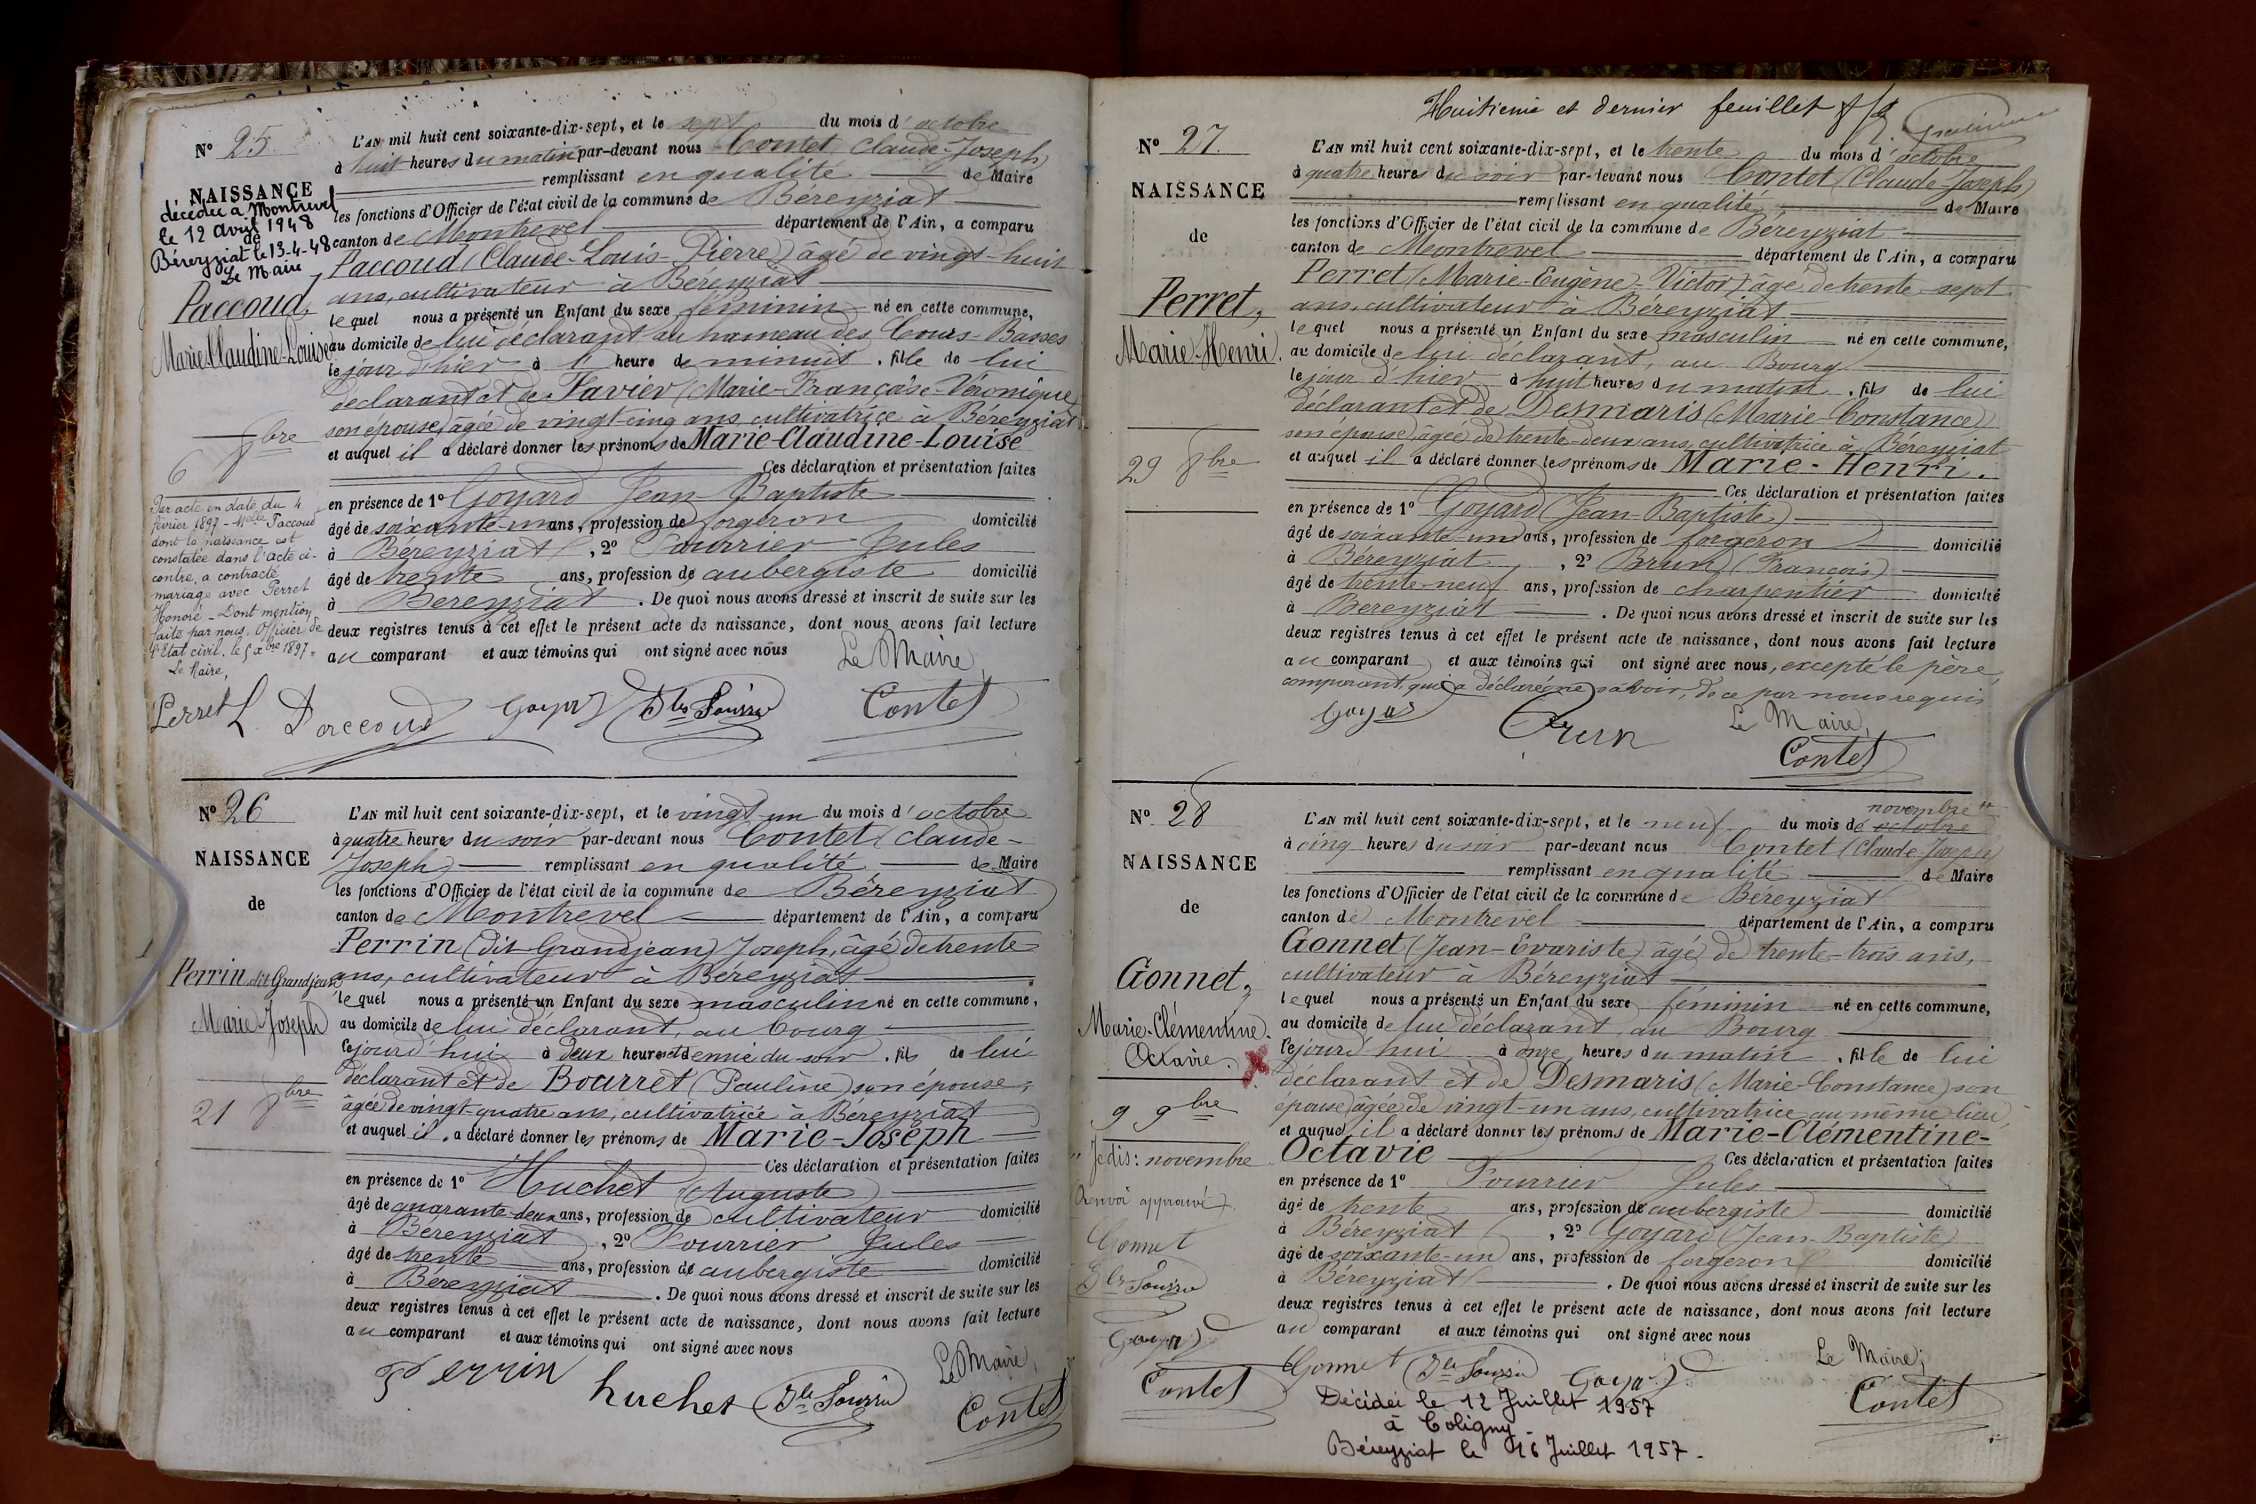 Nº 25
NAISSANCE
décédée à Montrevel
le 12 avril 1948
de
Béreyziat le 13-4-48
Le Maire
Paccoud,
Marie-Claudine-Louise
6 8bre
Par acte en date du 4
février 1897 - Melle Paccoud
dont la naissance est
constatée dans l'acte ci-
contre, a contracté
mariage avec Perret
Honoré - Dont mention
faite par nous, Officier de
l'Etat civil, le 5 xbre 1897.
Le Maire,
Perret L.
L'AN mil huit cent soixante-dix-sept, et le sept du mois d'octobre
à huit heures du matin par-devant nous Contet Claude-Joseph
remplissant en qualité de Maire
les fonctions d'Officier de l'état civil de la commune de Béreyziat
canton de Montrevel département de l'Ain, a comparu
Paccoud (Claude-Louis-Pierre) âgé de vingt-huit
ans, cultivateur à Béreyziat
lequel nous a présenté un Enfant du sexe féminin né en cette commune,
au domicile de lui déclarant au hameau des Cours-Basses
le jour d'hier à heure de minuit, fille de lui
déclarant et de Favier (Marie-Françoise-Véronique)
son épouse, âgée de vingt-cinq ans, cultivatrice à Béreyziat
et auquel il a déclaré donner les prénoms de Marie-Claudine-Louise
Ces déclaration et présentation faites
en présence de 1º Goyard Jean-Baptiste
âgé de soixante-un ans, profession de forgeron domicilié
à Béreyziat, 2º Fourrier Jules
âgé de trente ans, profession de aubergiste domicilié
à Béreyziat. De quoi nous avons dressé et inscrit de suite sur les
deux registres tenus à cet effet le présent acte de naissance, dont nous avons fait lecture
au comparant et aux témoins qui ont signé avec nous
Le Maire,
Paccoud Goyard Jles Fourrier Contet
Nº 26
NAISSANCE
de
Perrin dit Grandjean
Marie-Joseph
21 8bre
L'AN mil huit cent soixante-dix-sept, et le vingt-un du mois d'octobre
à quatre heures du soir par-devant nous Contet (Claude-
Joseph) remplissant en qualité de Maire
les fonctions d'Officier de l'état civil de la commune de Béreyziat
canton de Montrevel département de l'Ain, a comparu
Perrin (dit Grandjean) Joseph, âgé de trente
ans, cultivateur à Béreyziat
lequel nous a présenté un Enfant du sexe masculin né en cette commune,
au domicile de lui déclarant, au bourg
cejourd'hui à deux heures et demie du soir, fils de lui
déclarant et de Bourret (Pauline) son épouse,
âgée de vingt-quatre ans, cultivatrice à Béreyziat
et auquel il a déclaré donner les prénoms de Marie-Joseph
Ces déclaration et présentation faites
en présence de 1º Huchet (Auguste)
âgé de quarante-deux ans, profession de cultivateur domicilié
à Béreyziat, 2º Fourrier Jules
âgé de trente ans, profession de aubergiste domicilié
à Béreyziat. De quoi nous avons dressé et inscrit de suite sur les
deux registres tenus à cet effet le présent acte de naissance, dont nous avons fait lecture
au comparant et aux témoins qui ont signé avec nous
Le Maire,
Perrin huchet Jles Fourrier Contet
Huitième et dernier feuillet
Nº 27
NAISSANCE
de
Perret,
Marie-Henri.
29 8bre
L'AN mil huit cent soixante-dix-sept, et le trente du mois d'octobre
à quatre heures du soir par-devant nous Contet (Claude-Joseph)
remplissant en qualité de Maire
les fonctions d'Officier de l'état civil de la commune de Béreyziat
canton de Montrevel département de l'Ain, a comparu
Perret (Marie-Eugène-Victor) âgé de trente-sept
ans, cultivateur à Béreyziat
lequel nous a présenté un Enfant du sexe masculin né en cette commune,
au domicile de lui déclarant, au Bourg
le jour d'hier à huit heures du matin, fils de lui
déclarant et de Desmaris (Marie-Constance)
son épouse, âgée de trente-deux ans, cultivatrice à Béreyziat
et auquel il a déclaré donner les prénoms de Marie-Henri.
Ces déclaration et présentation faites
en présence de 1º Goyard (Jean-Baptiste)
âgé de soixante-un ans, profession de forgeron domicilié
à Béreyziat, 2º Brun (François)
âgé de trente-neuf ans, profession de charpentier domicilié
à Béreyziat. De quoi nous avons dressé et inscrit de suite sur les
deux registres tenus à cet effet le présent acte de naissance, dont nous avons fait lecture
au comparant et aux témoins qui ont signé avec nous, excepté le père
comparant, qui a déclaré ne savoir, de ce par nous requis
Goyard Brun Le Maire,
Contet
Nº 28
NAISSANCE
de
Gonnet,
Marie-Clémentine-
Octavie.
9 9bre
" Je dis: novembre
Renvoi approuvé
Gonnet
Jles Fourrier
Goyard
Contet
novembre "
L'AN mil huit cent soixante-dix-sept, et le neuf du mois de octobre
à cinq heures du soir par-devant nous Contet (Claude-Joseph)
remplissant en qualité de Maire
les fonctions d'Officier de l'état civil de la commune de Béreyziat
canton de Montrevel département de l'Ain, a comparu
Gonnet (Jean-Evariste) âgé de trente-trois ans,
cultivateur à Béreyziat
lequel nous a présenté un Enfant du sexe féminin né en cette commune,
au domicile de lui déclarant, au Bourg
cejourd'hui à onze heures du matin, fille de lui
déclarant et de Desmaris (Marie-Constance) son
épouse, âgée de vingt-un ans, cultivatrice au même lieu,
et auquel il a déclaré donner les prénoms de Marie-Clémentine-
Octavie Ces déclaration et présentation faites
en présence de 1º Fourrier Jules
âgé de trente ans, profession de aubergiste domicilié
à Béreyziat, 2º Goyard (Jean-Baptiste)
âgé de soixante-un ans, profession de forgeron domicilié
à Béreyziat. De quoi nous avons dressé et inscrit de suite sur les
deux registres tenus à cet effet le présent acte de naissance, dont nous avons fait lecture
au comparant et aux témoins qui ont signé avec nous
Le Maire,
Gonnet Jles Fourrier Goyard Contet
Décédée le 12 Juillet 1957
à Coligny.
Béreyziat le 16 Juillet 1957.